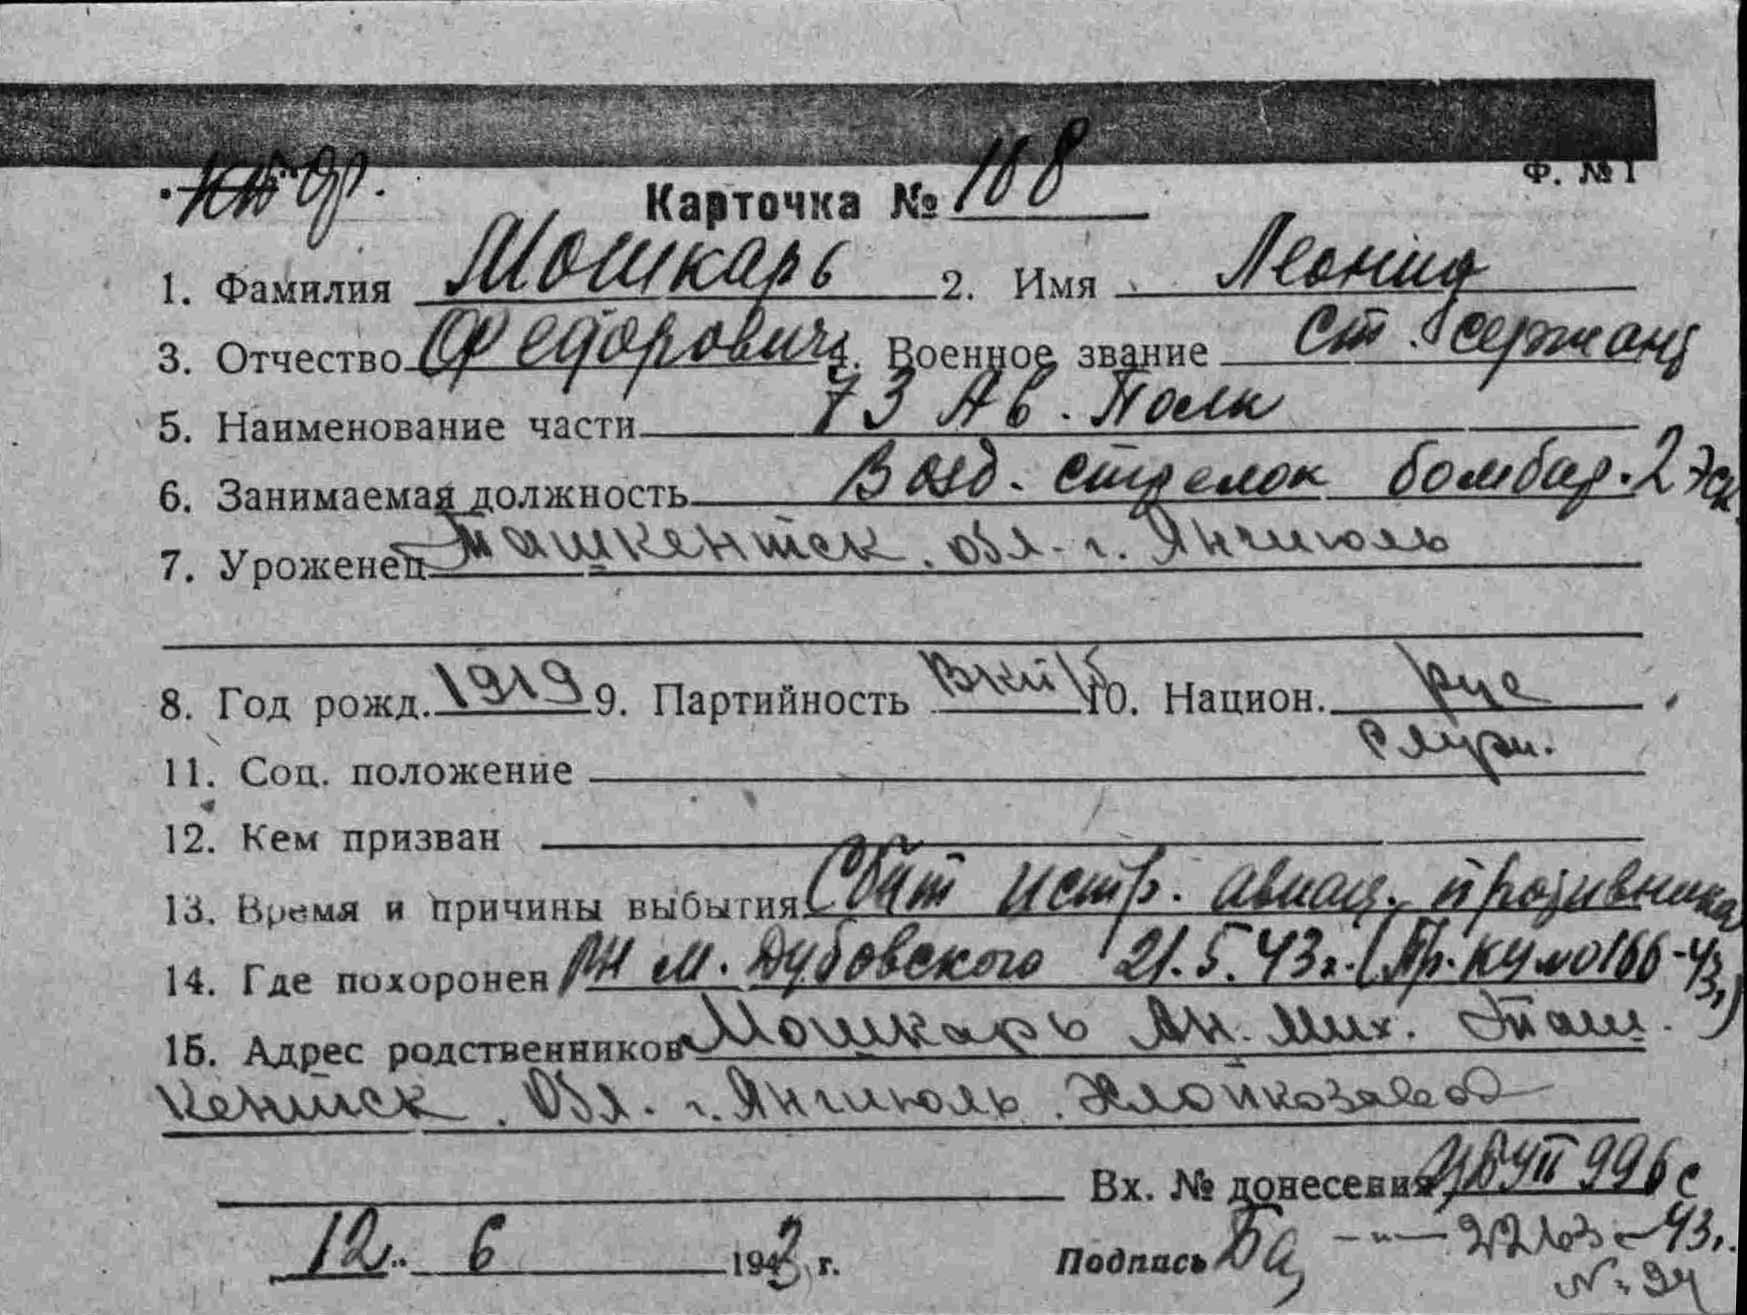 Ф. № 1
Карточка № 168
1. Фамилия Мошкарь 2. Имя Леонид
3. Отчество Федорович 4. Военное звание ст. сержант
5. Наименование части 73 Ав. Полк
6. Занимаемая должность Возд. стрелок бомбар. 2 Эск.
7. Уроженец Ташкентск. обл. г. Янгиюль
8. Год рожд. 1919 9. Партийность ВКП/б 10. Национ. рус
11. Соц. положение служ.
12. Кем призван
13. Время и причины выбытия Сбит истр. авиац. противника
14. Где похоронен РН м. Дубовского 21.5.43г. (Пр. КЧ №0166-43г.)
15. Адрес родственников Мошкарь Ан. Мих. Таш
кентск. Обл. г. Янгиюль. Хлопкозавод
Вх. № донесения 996с
12. 6 1943 г. Подпись — " — 2263с-43г.
№ 94